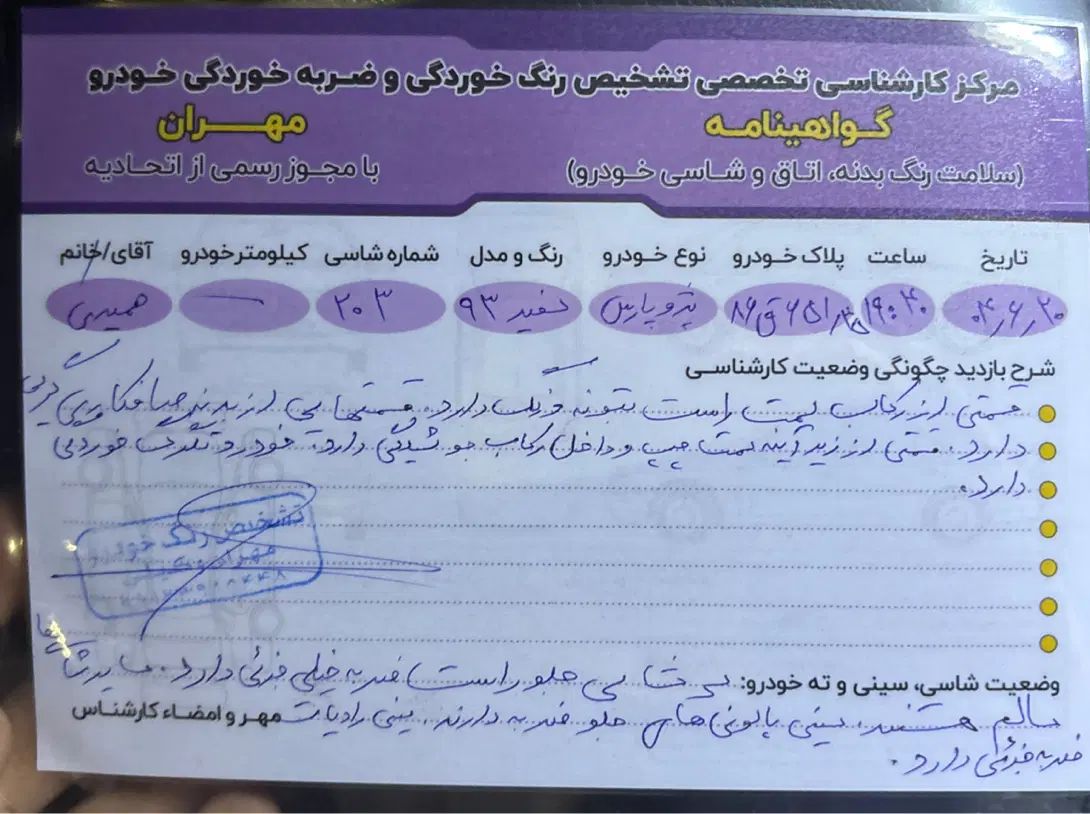 مرکز کارشناسی تخصصی تشخیص رنگ خوردگی و ضربه خوردگی خودرو
گواهینامه
مهران
(سلامت رنگ بدنه، اتاق و شاسی خودرو)
با مجوز رسمی از اتحادیه
تاریخ ساعت پلاک خودرو نوع خودرو رنگ و مدل شماره شاسی کیلومتر خودرو آقای/خانم
۰۴٫۶٫۲۰ ۱۹:۴۰ پژو پارس سفید ۹۳ ۲۰۳
شرح بازدید چگونگی وضعیت کارشناسی
قسمتی از رکاب سمت راست بتونه و رنگ دارد. قسمتهایی از بدنه صافکاری
دارد. قسمتی از زیر آینه سمت چپ و داخل رکاب دارد. خودرو تگرگ خوردگی
دارد.
تشخیص رنگ خودرو
وضعیت شاسی، سینی و ته خودرو: سر شاسی جلو راست ضربه خیلی جزئی دارد. سایر شاسی‌ها
سالم هستند. سینی جلو ضربه دارند. سینی رادیات
مهر و امضاء کارشناس
ضربه جزئی دارد.